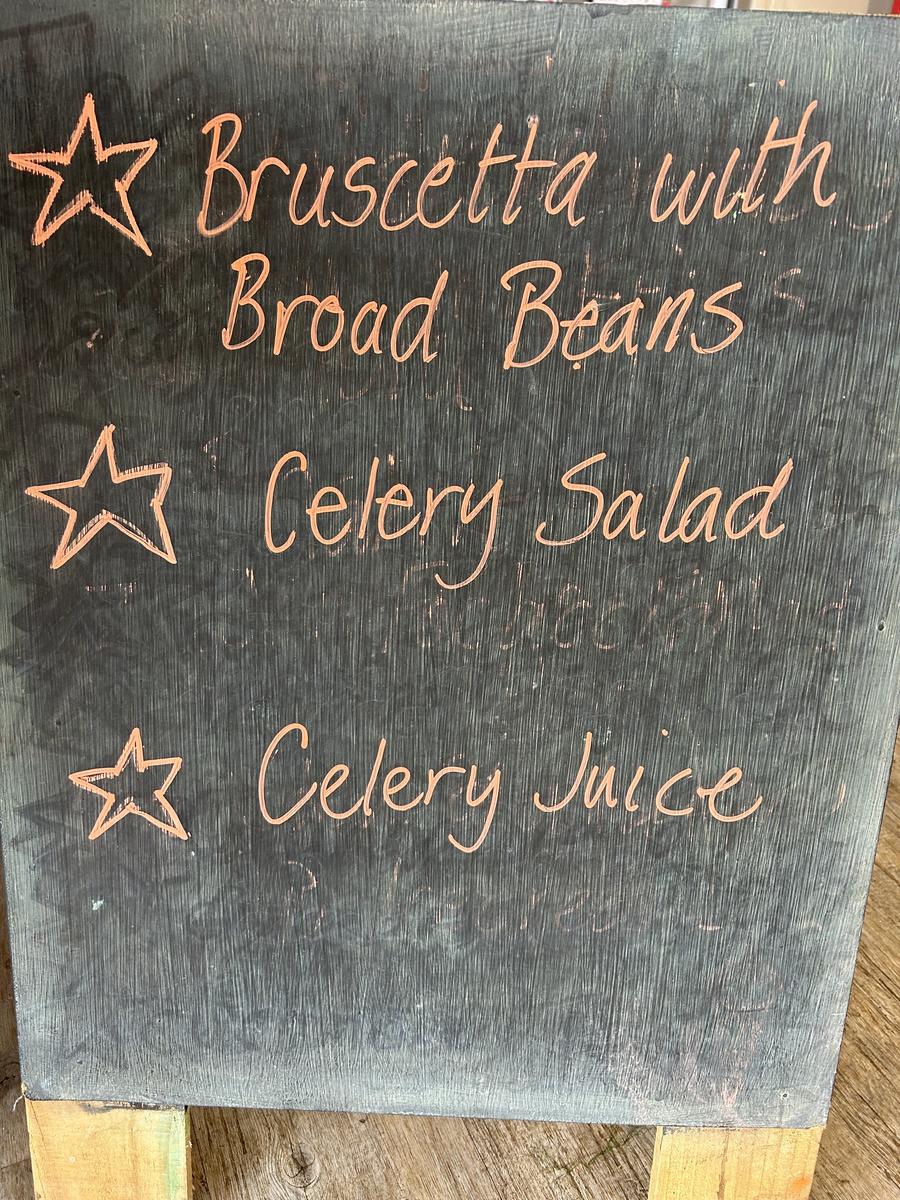 Bruscetta with
Broad Beans
Celery Salad
Celery Juice